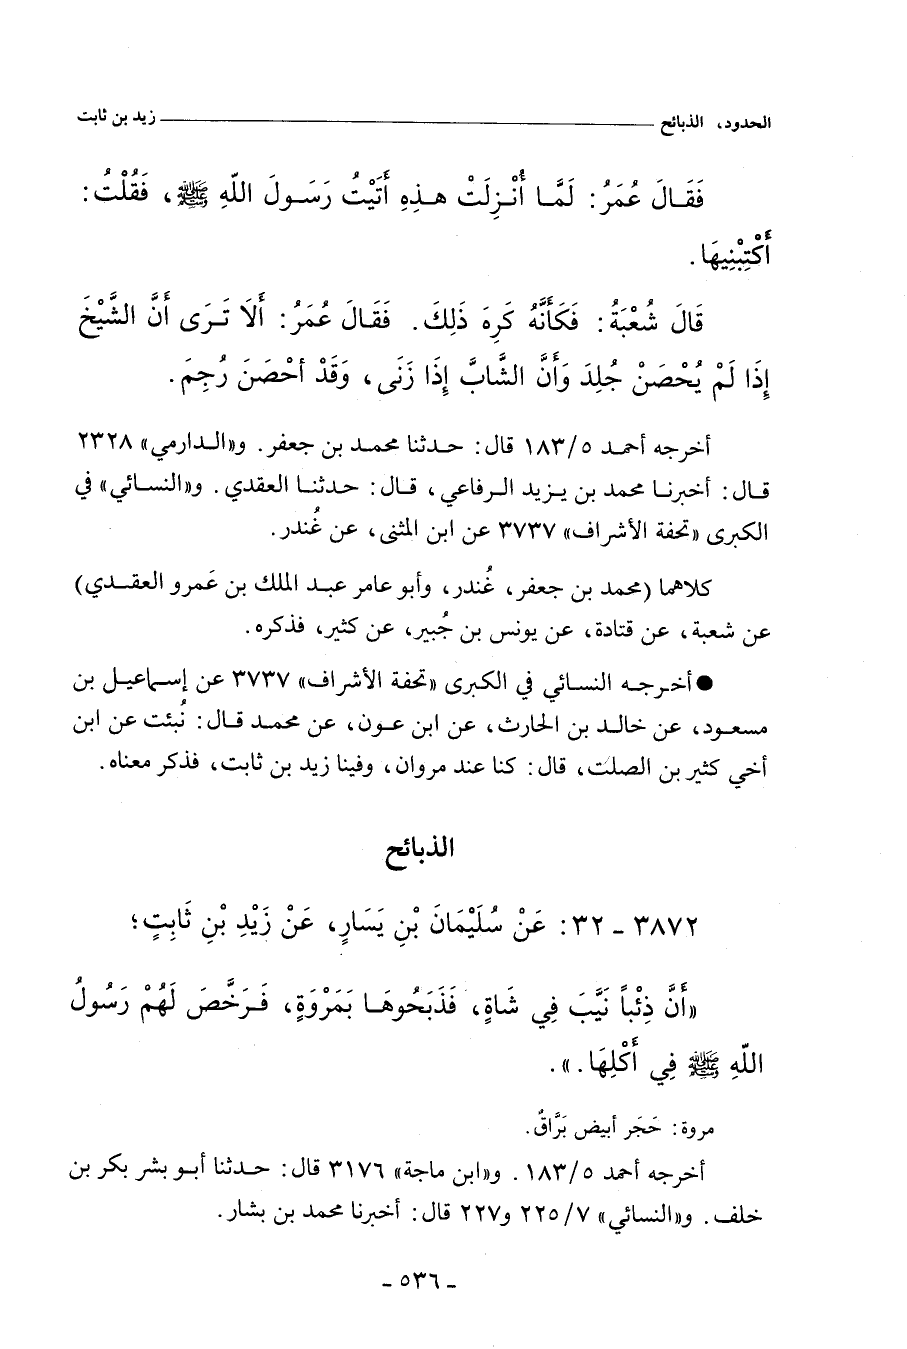 الحدود، الذبائح ــــــــــــــــــــــــــــ زيد بن ثابت
فَقَـالَ عُمَرُ: لَمَّـا أُنْـزِلَتْ هـذِهِ أَتَيْتُ رَسَـولَ اللّهِ ﷺ، فَقُلْتُ:
أَكْتِبْنِيهَا.
قَالَ شُعْبَةُ: فَكَأَنَّهُ كَرِهَ ذَلِكَ. فَقَالَ عُمَرُ: أَلَا تَـرَى أَنَّ الشَّيْخَ
إِذَا لَمْ يُحْصَنْ جُلِدَ وَأَنَّ الشَّابَّ إِذَا زَنَى، وَقَدْ أحْصَنَ رُجِمَ.
أخرجه أحمـد ١٨٣/٥ قال: حـدثنا محمـد بن جعفر. و«الـدارمي» ٢٣٢٨
قـال: أخبرنـا محمد بن يـزيد الـرفاعي، قـال: حدثنـا العقدي. و«النسـائي» في
الكبرى «تحفة الأشراف» ٣٧٣٧ عن ابن المثنى، عن غُندر.
كلاهما (محمد بن جعفر، غُندر، وأبو عامر عبـد الملك بن عَمرو العقـدي)
عن شعبة، عن قتادة، عن يونس بن جُبير، عن كثير، فذكره.
● أخـرجـه النسـائي في الكبرى «تحفة الأشراف» ٣٧٣٧ عن إسـماعيـل بن
مسعـود، عن خالـد بن الحارث، عن ابن عـون، عن محمـد قـال: نُبئت عن ابن
أخي كثير بن الصلت، قال: كنا عند مروان، وفينا زيد بن ثابت، فذكر معناه.
الذبائح
٣٨٧٢ ـ ٣٢: عَنْ سُلَيْمَانَ بْنِ يَسَارٍ، عَنْ زَيْدِ بْنِ ثَابِتٍ؛
«أَنَّ ذِئْباً نَيَّبَ فِي شَاةٍ، فَذَبَحُوهَـا بَمَرْوَةٍ، فَـرَخَّصَ لَهُمْ رَسُولُ
اللّهِ ﷺ فِي أَكْلِهَا.».
مروة: حَجَر أبيض بَرَّاقٌ.
أخرجه أحمد ١٨٣/٥. و«ابن ماجة» ٣١٧٦ قال: حـدثنا أبـو بشر بكر بن
خلف. و«النسائي» ٢٢٥/٧ و٢٢٧ قال: أخبرنا محمد بن بشار.
ـ ٥٣٦ ـ